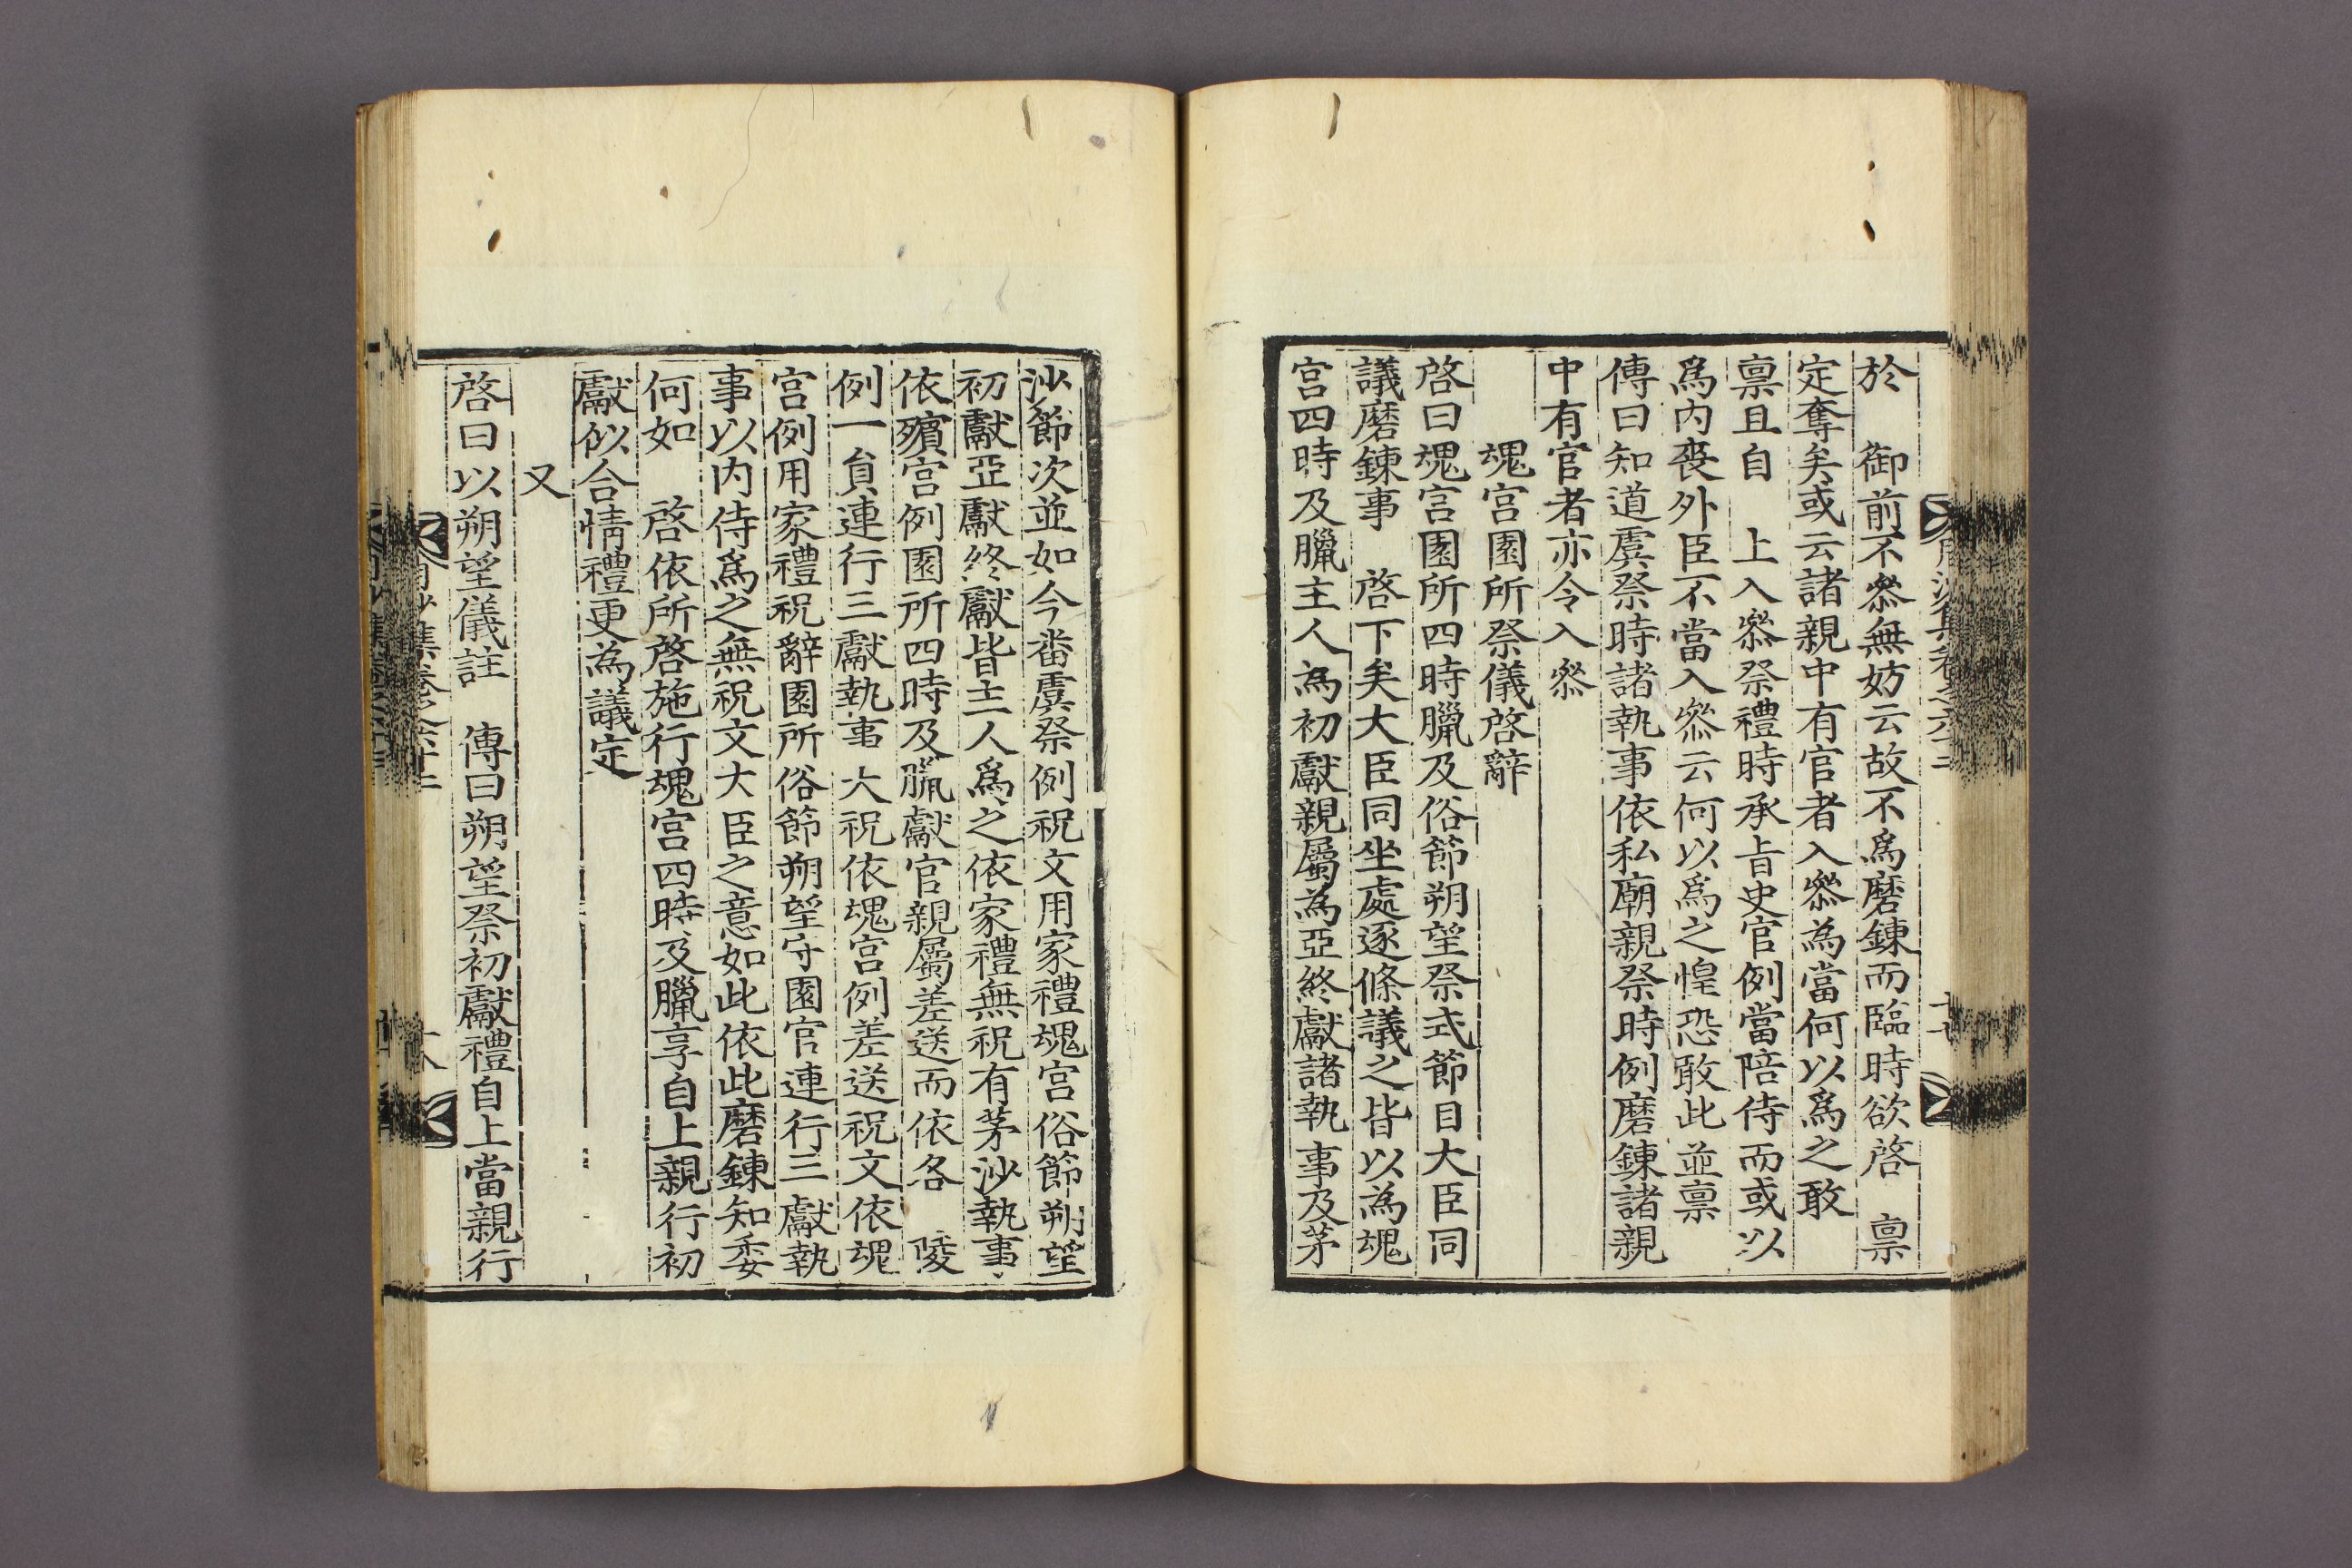 於 御前不叅無妨云故不爲磨鍊而臨時欲啓 禀
定奪矣或云諸親中有官者入叅為當何以爲之敢
禀且自 上入叅祭禮時承旨史官例當陪侍而或以
爲内喪外臣不當入叅云何以爲之惶恐敢此並禀
傳曰知道虞祭時諸執事依私廟親祭時例磨鍊諸親
中有官者亦令入叅
魂宮園所祭儀啓辭
啓曰魂宮園所四時臘及俗節朔望祭式節目大臣同
議磨鍊事 啓下矣大臣同坐處逐條議之皆以為魂
宮四時及臘主人為初獻親屬為亞終獻諸執事及茅
沙節次並如今番虞祭例祝文用家禮魂宮俗節朔望
初獻亞獻終獻皆主人爲之依家禮無祝有茅沙執事
依殯宮例園所四時及臘獻官親屬差送而依各 陵
例一員連行三獻執事大祝依魂宮例差送祝文依魂
宮例用家禮祝辭園所俗節朔望守園官連行三獻執
事以内侍爲之無祝文大臣之意如此依此磨鍊知委
何如 啓依所啓施行魂宮四時及臘享自上親行初
獻似合情禮更為議定
又
啓曰以朔望儀註 傳曰朔望祭初獻禮自上當親行